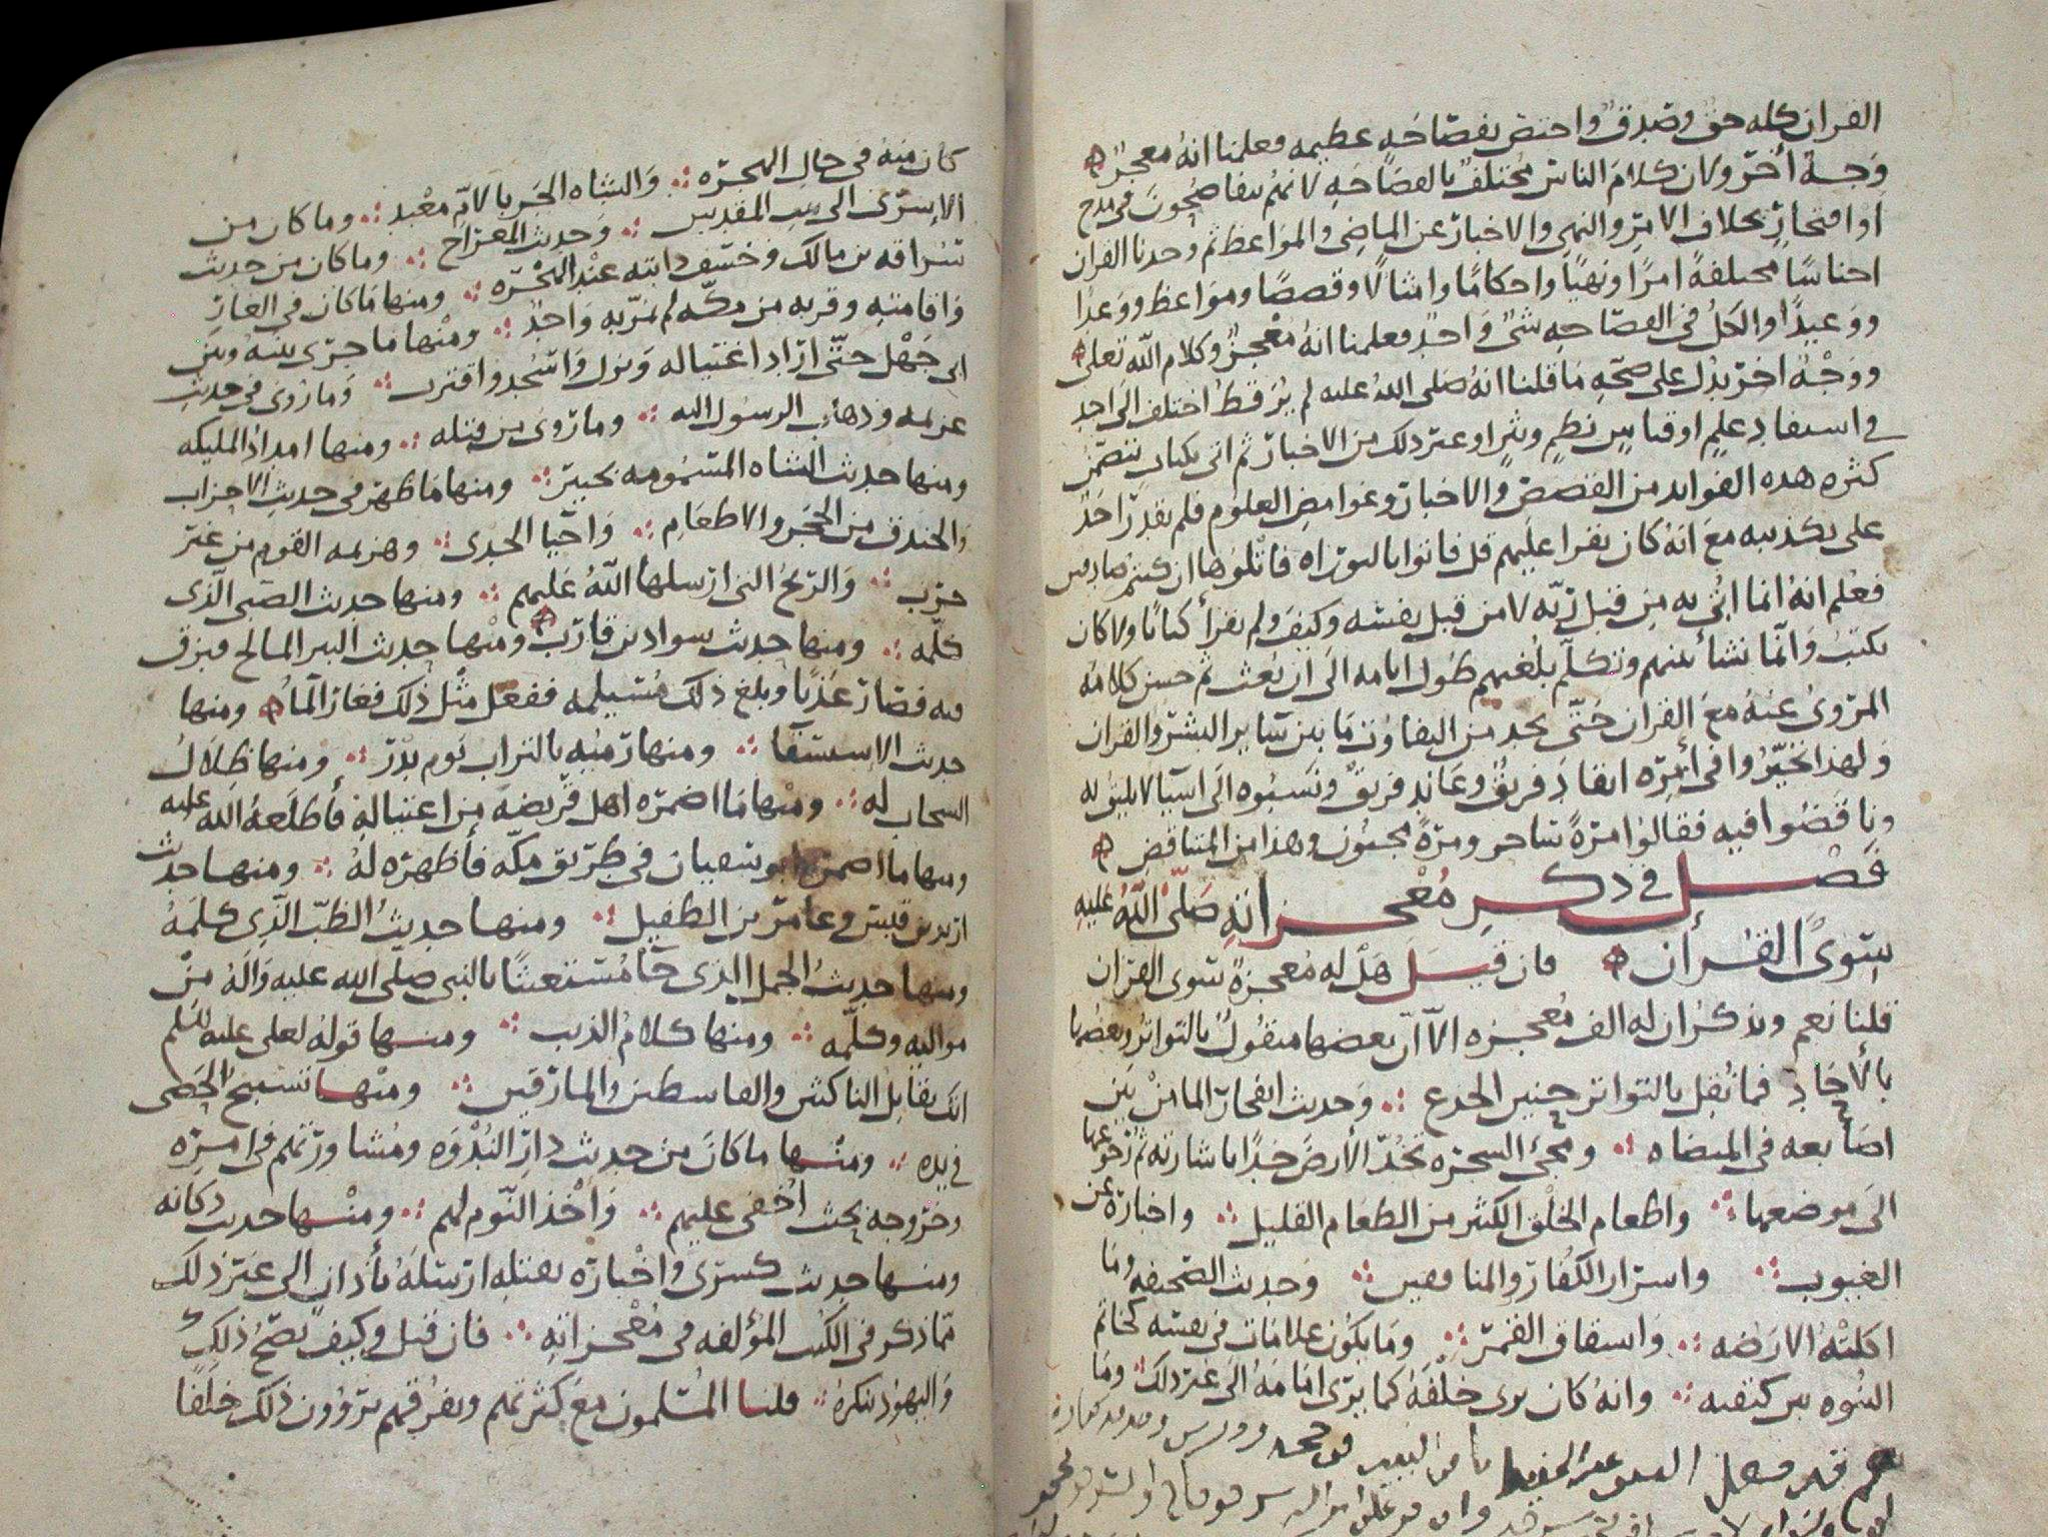 القران كله حق وصدق واختص بفصاحه عظيمه فعلمنا انه معجز
وجه أخر ولان كلام الناس يختلف بالفصاحه لانهم يتفاصحون في مدح
او افتخار بخلاف الامر والنهي والاخبار عن الماضي والمواعظ ثم وجدنا القران
اجناسا مختلفة امرا ونهيا واحكاما وامثالا وقصصا ومواعظ ووعدا
ووعيدا والكل في الفصاحه شي واحد فعلمنا انه معجز وكلام الله تعلى
ووجه اخر يدل على صحه ما قلنا انه صلى الله عليه لم ير قط اختلف الى احد
في استفاد علم او قياس نظم ونثر او غير ذلك من الاخبار ثم اتى بكتاب يتضمن
كثره هده الفوايد من القصص والاخبار وغوامض العلوم فلم يقدر احد
على تكذيبه مع انه كان يقرا عليهم قل فاتوا بالتوراه فاتلوها ان كنتم صادقين
فعلم انه انما اتى به من قبل ربه لا من قبل نفسه وكيف ولم يقرأ كتابا ولا كان
يكتب وانما نشأ بينهم وتكلم بلغتهم طول ايامه الى ان بعث ثم حسن كلامه
المروى عنه مع القران حتى يجد من التفاوت ما بين ساير البشر والقران
ولهذا تحيروا في أمره انقاد فريق وعاند فريق ونسبوه الى اشيا لا يليق به
وناقضوا فيه فقالوا مرة ساحر ومرة مجنون وهذا من المتناقض
فصل في ذكر معجزاته صلى الله عليه
سوى القرأن فان قيل هل له معجزة سوى القران
قلنا نعم ونذكر ان له الف معجزه الا ان بعضها منقول بالتواتر وبعضها
بالأحاد فما نقل بالتواتر حنين الجدع وحديث انفجار الما من بين
اصابعه في الميضاه ومجى الشجره تخد الأرض خدا باشارته ثم رجوعها
الى موضعها واطعام الخلق الكثير من الطعام القليل واخباره عن
الغيوب واسرار الكفار والمنافقين وحديث الصحيفه وما
اكلته الارضه وانشقاق القمر وما يكون علامات في نفسه كخاتم
النبوه بين كتفيه وانه كان يرى خلفه كما يرى امامه الى غير ذلك وما
كان منه في حال الهجره والشاه الجربا لام معبد وما كان من
الإسرى الى بيت المقدس وحديث المعراج وما كان من حديث
سراقه بن مالك وخسف دابته عند الهجره ومنها ما كان في الغار
واقامته وقربه من مكه لم يمر به واحد ومنها ما جرى بينه وبين
ابي جهل حتى اراد اغتياله ونزل واسجد واقترب وما روى في حديث
عزلمه وذهاب الرسول اليه وما روى من قتله ومنها امداد المليكه
ومنها حديث الشاه المسمومه بخيبر ومنها ما ظهر في حديث الاحزاب
والخندق من الحجر والاطعام واحيا الجدى وهزيمه القوم من غير
حرب والريح التى ارسلها الله عليهم ومنها حديث الصبى الذى
كلمه ومنها حديث سواد بن قارب ومنها حديث البير المالح فبزق
فيه فصار عذبا وبلغ ذلك مسيلمه ففعل مثل ذلك فغار الما ومنها
حديث الإستسقا ومنها رميه بالتراب يوم بدر ومنها ظلال
السحاب له ومنها ما اضمره اهل قريضه من اغتياله فأطلعه الله عليه
ومنها ما اضمر ابو سفيان في طريق مكه فأظهره له ومنها حديث
اربد بن قيس وعامر بن الطفيل ومنها حديث الظب الذى كلمه
ومنها حديث الجمل الذى جا مستغيثا بالنبى صلى الله عليه واله من
مواليه وكلمه ومنها كلام الذيب ومنها قوله لعلى عليه السلم
انك تقاتل الناكثين والقاسطين والمارقين ومنها تسبيح الحصى
في يده ومنها ما كان من حديث دار الندوه ومشاورتهم في امره
وخروجه بحيث اخفى عليهم واخذ النوم لهم ومنها حديث ركانه
ومنها حديث كسرى واخباره بقتله ارسله بأذان الى غير ذلك
مما ذكر في الكتب المؤلفه في معجزاته فان قيل وكيف يصح ذلك
واليهود تنكره قلنا المسلمون مع كثرتهم وتفرقهم يروون ذلك خلفا